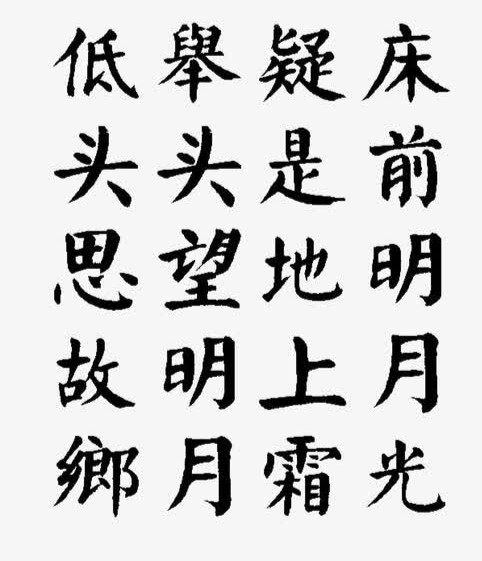 床前明月光
疑是地上霜
舉头望明月
低头思故鄉